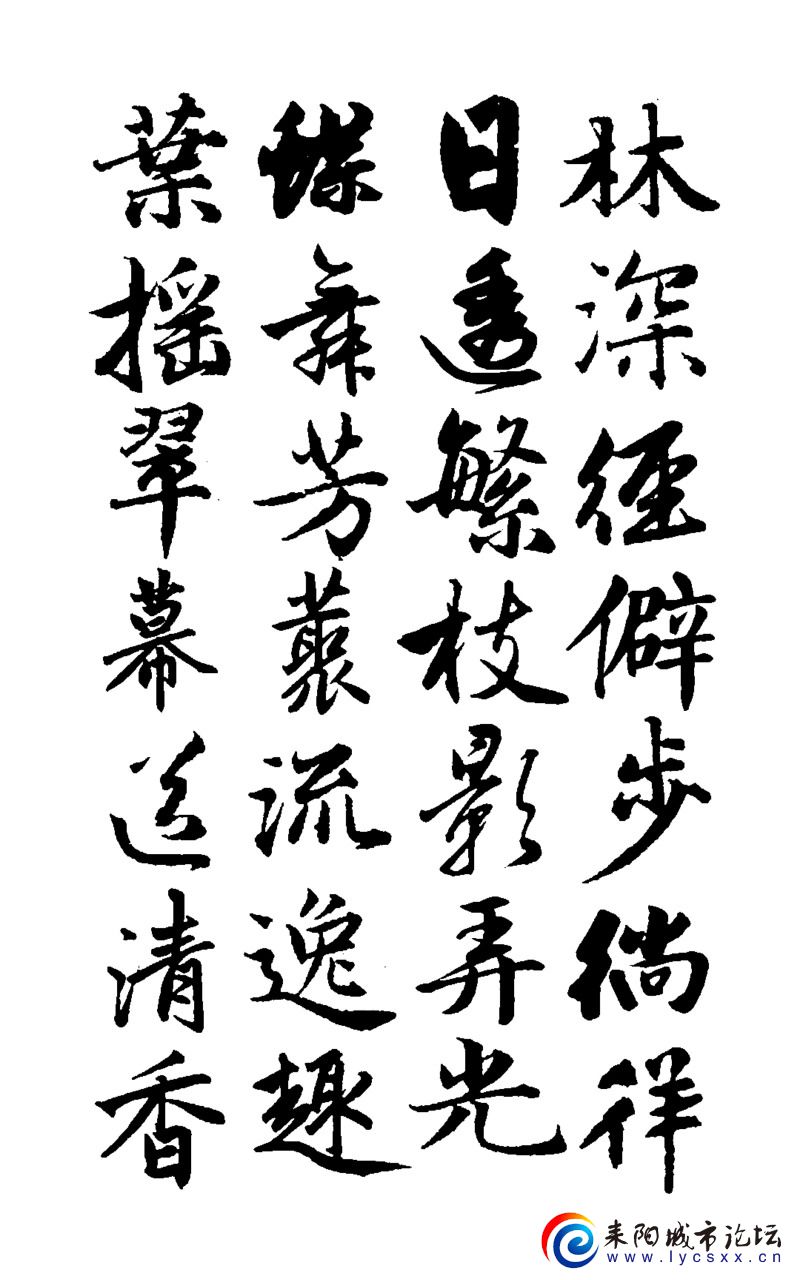 林深徑僻步徜徉
日透繁枝影弄光
蝶舞芳叢流逸趣
葉摇翠幕送清香
耒阳城市论坛
www.lycsxx.cn